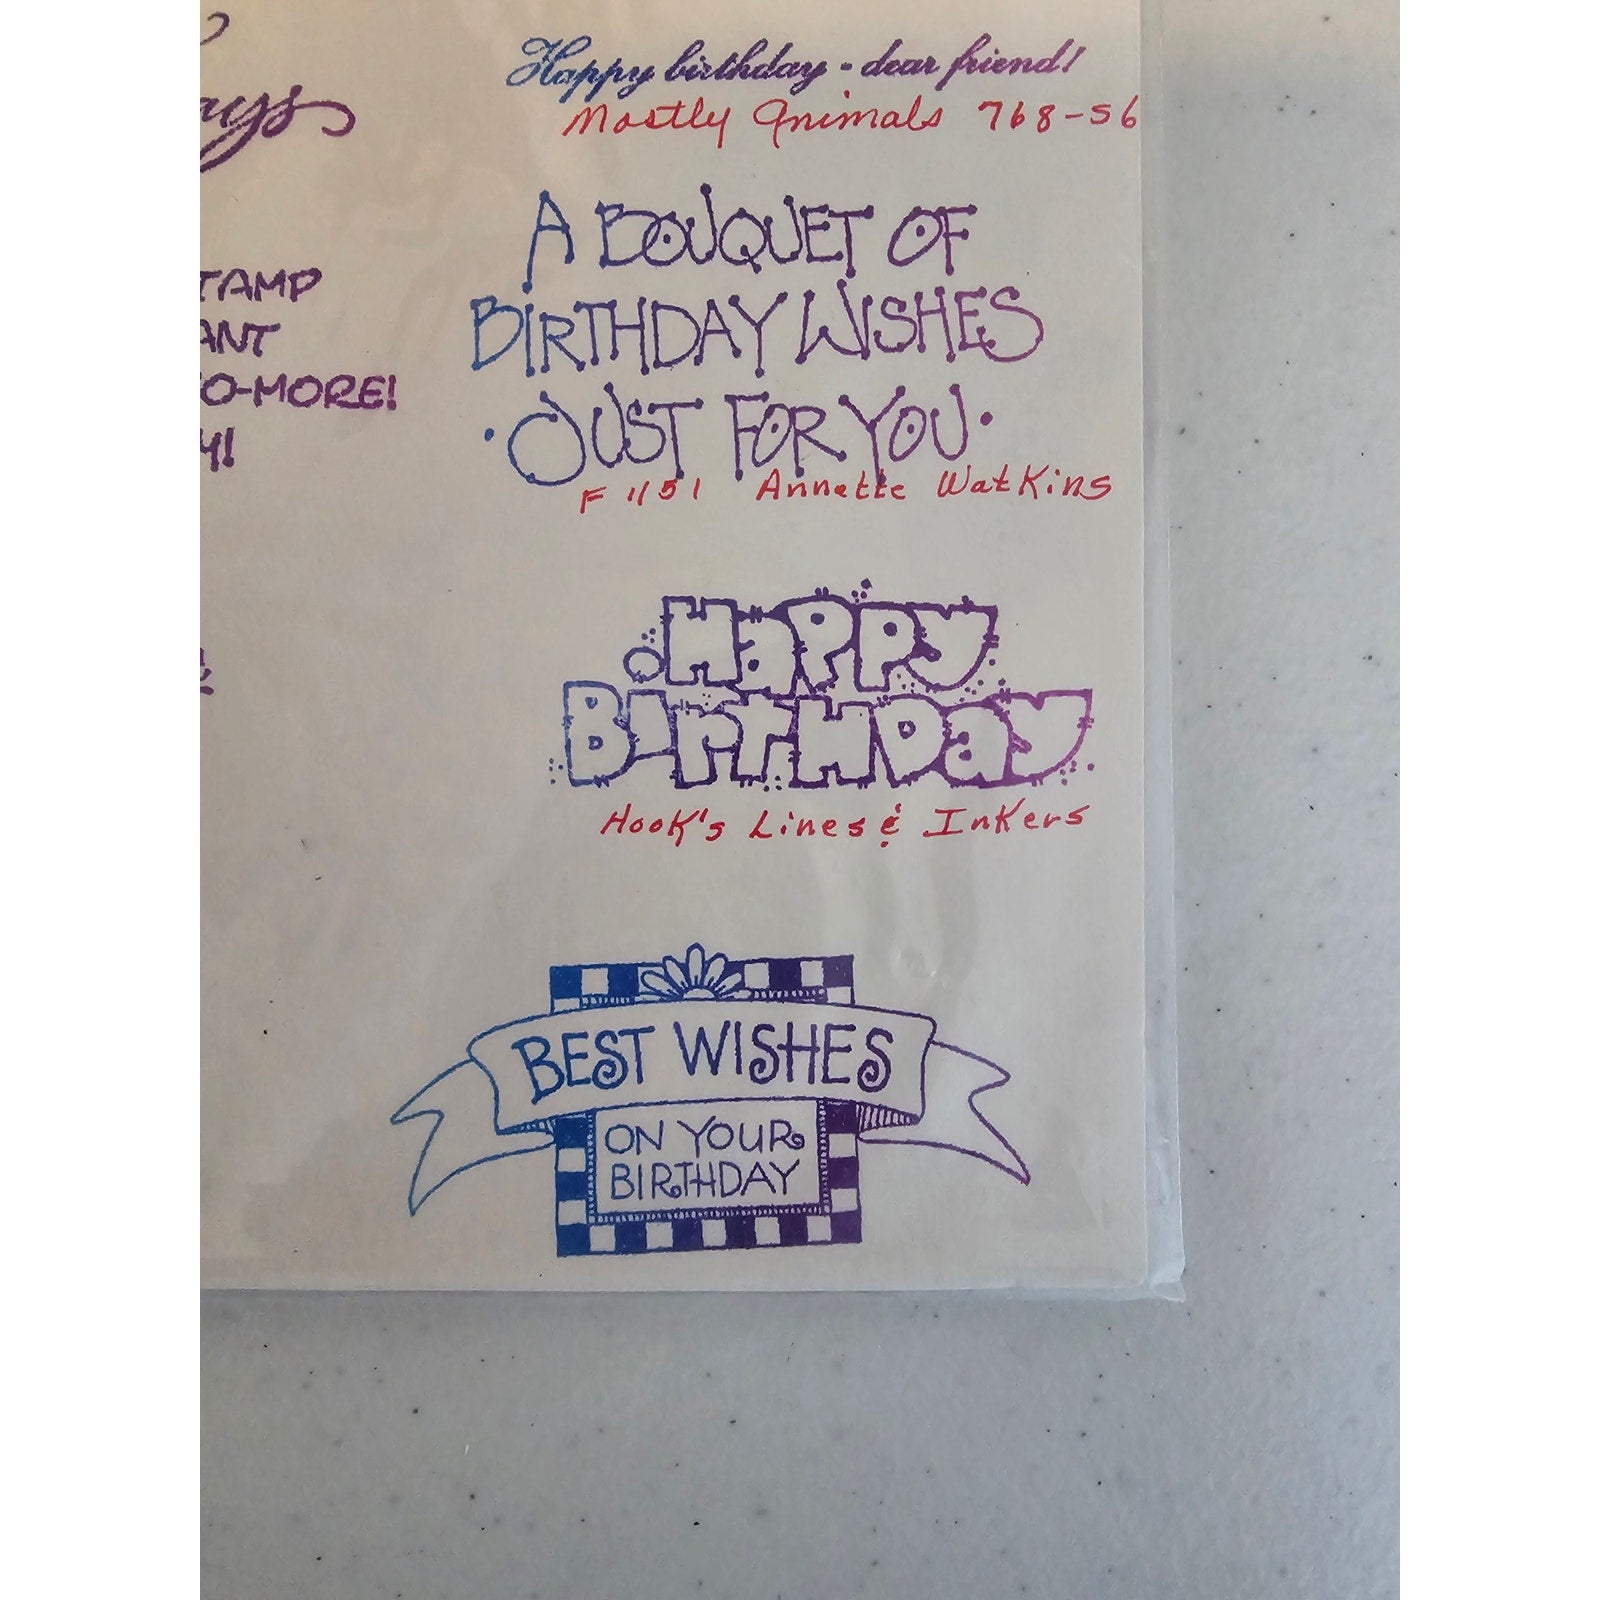 Happy birthday - dear friend!
Mostly Animals 768-56
A BOUQUET OF
BIRTHDAY WISHES
·JUST FOR YOU·
F1151 Annette Watkins
HAPPY
BIRTHDAY
Hook's Lines & Inkers
BEST WISHES
ON YOUR
BIRTHDAY
TAMP
ANT
O-MORE!